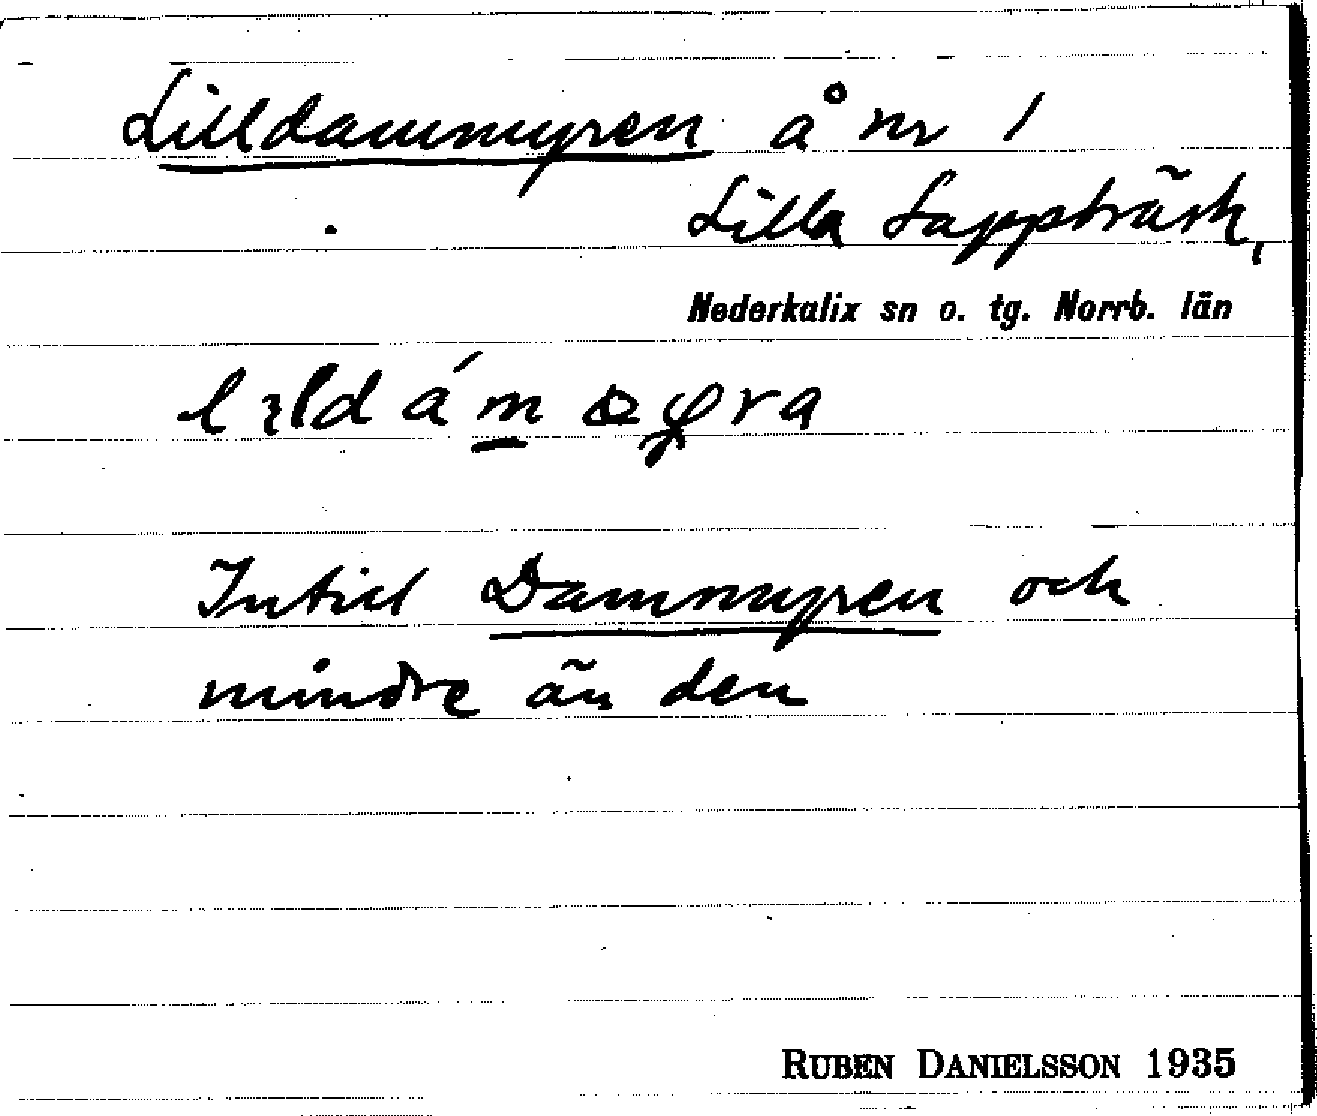 Lilldammyren å nr 1
Lilla Lappträsk,
Nederkalix sn o. tg. Norrb. län
Intill Dammyren och
mindre än den
RUBEN DANIELSSON 1935